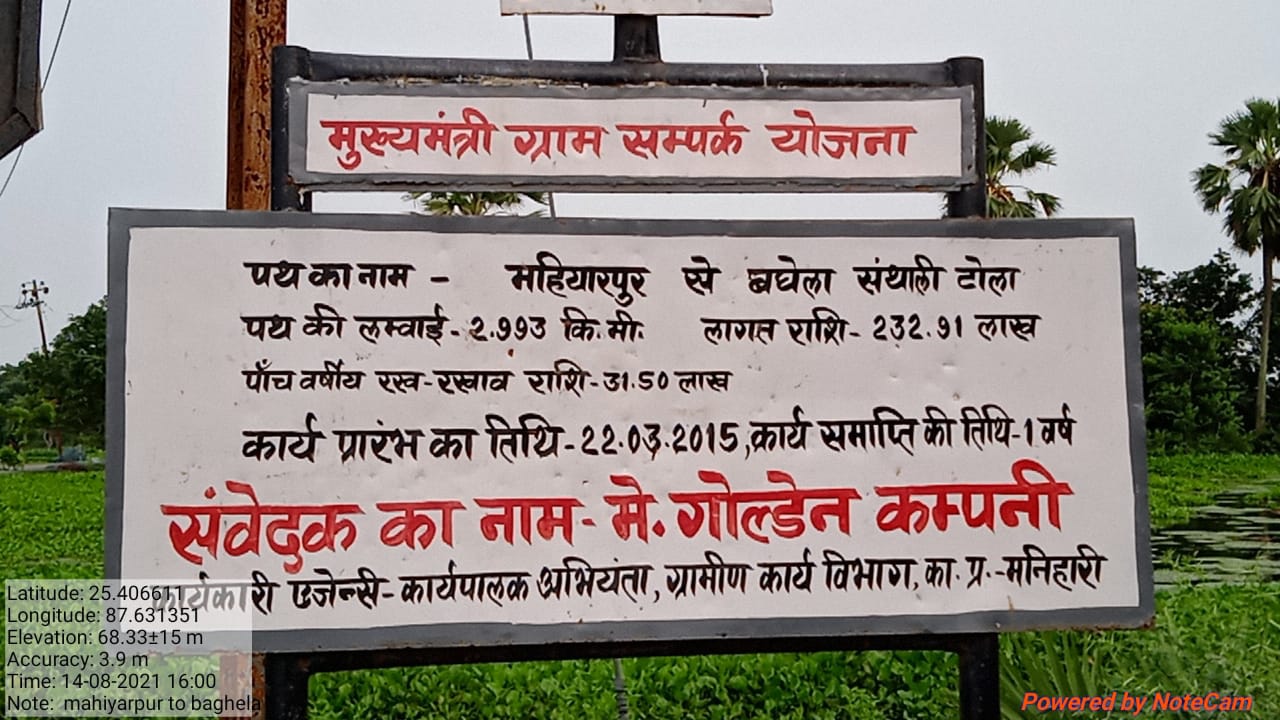 मुख्यमंत्री ग्राम सम्पर्क योजना
पथ का नाम - महियारपुर से बघेला संथाली टोला
पथ की लम्वाई - 2.993 कि.मी. लागत राशि - 232.91 लाख
पाँच वर्षीय रख-रखाव राशि - 31.50 लाख
कार्य प्रारंभ का तिथि - 22.03.2015, कार्य समाप्ति की तिथि - 1 वर्ष
संवेदक का नाम - मे. गोल्डेन कम्पनी
कार्यकारी एजेन्सी - कार्यपालक अभियंता, ग्रामीण कार्य विभाग, का. प्र. - मनिहारी
Latitude: 25.406611
Longitude: 87.631351
Elevation: 68.33±15 m
Accuracy: 3.9 m
Time: 14-08-2021 16:00
Note: mahiyarpur to baghela
Powered by NoteCam